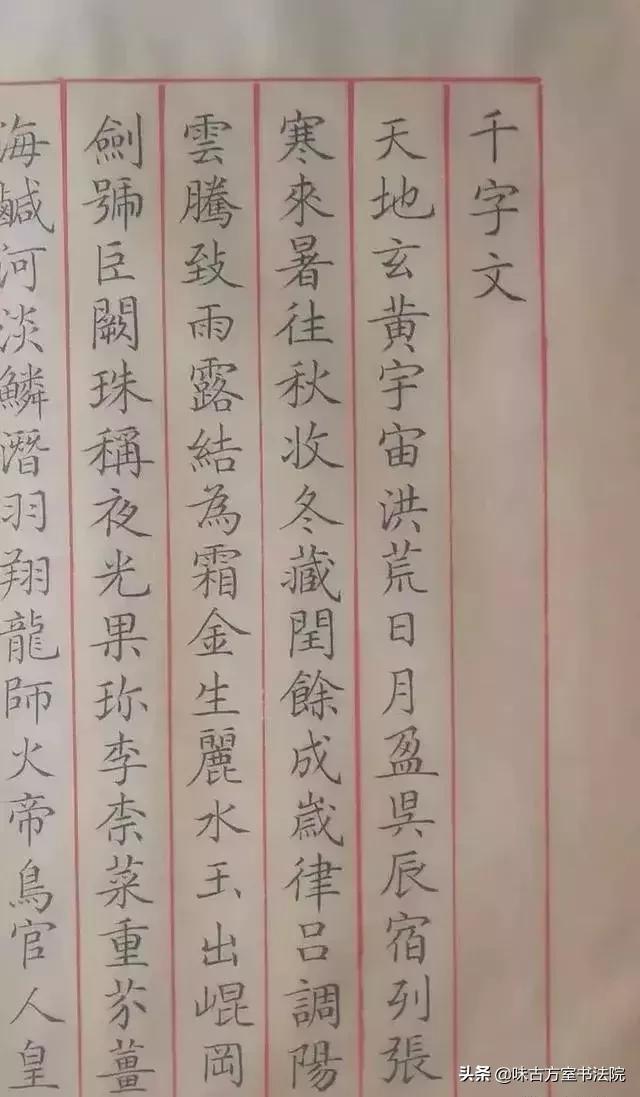 千字文
天地玄黄宇宙洪荒日月盈昃辰宿列張
寒來暑往秋收冬藏閏餘成歲律吕調陽
雲騰致雨露結為霜金生麗水玉出崐岡
劍號巨闕珠稱夜光果珎李柰菜重芥薑
海鹹河淡鱗潛羽翔龍師火帝鳥官人皇
头条 @味古方室书法院